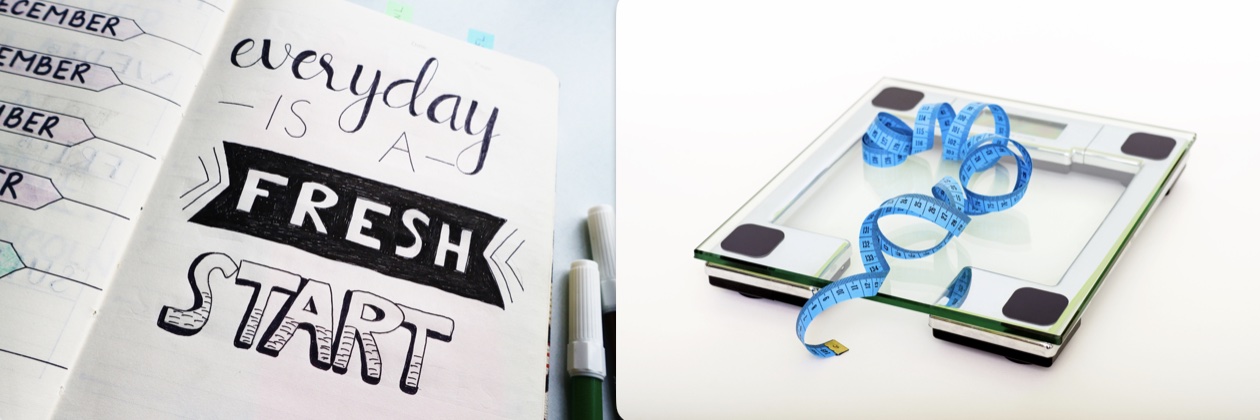 ECEMBER
EMBER
BER
R
everyday
IS
A
FRESH
START